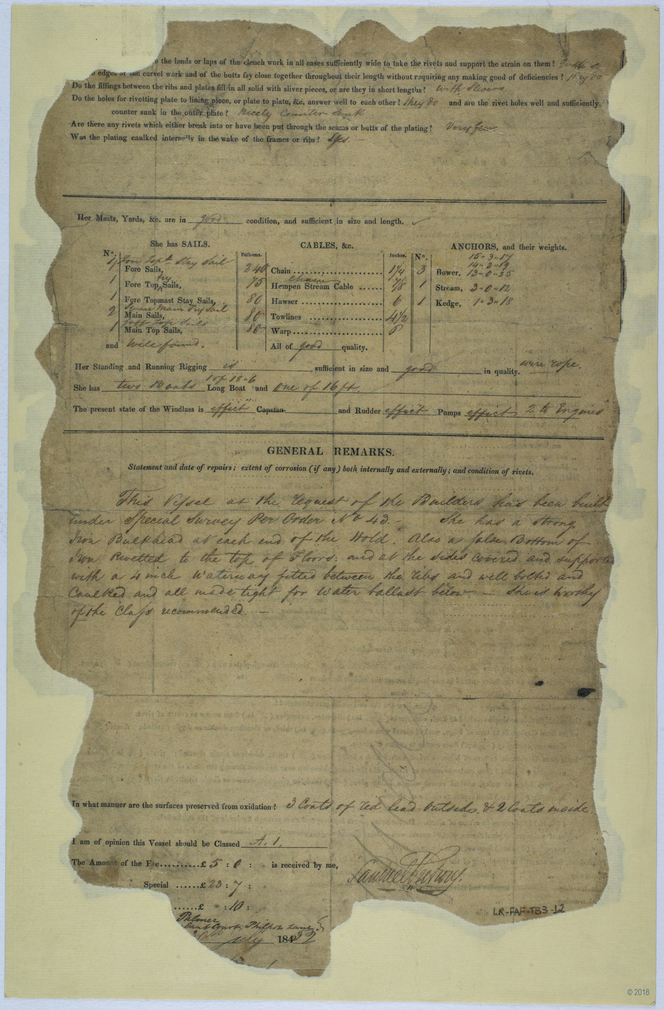 the lands or laps of the clench work in all cases sufficiently wide to take the rivets and support the strain on them?
edges of the carvel work and of the butts fay close together throughout their length without requiring any making good of deficiencies? They do
Do the fillings between the ribs and plates fill in all solid with sliver pieces, or are they in short lengths? with
Do the holes for rivetting plate to lining piece, or plate to plate, &c. answer well to each other? they do and are the rivet holes well and sufficiently
counter sunk in the outer plate? Nicely Counter sunk
Are there any rivets which either break into or have been put through the seams or butts of the plating? Very few
Was the plating caulked internally in the wake of the frames or ribs? Yes
Her Masts, Yards, &c. are in good condition, and sufficient in size and length.
She has SAILS. CABLES, &c. ANCHORS, and their weights.
N°. Fathoms. Inches. N°. 15-3-17
Stay Sail 14-2-19
1 Fore Sails, 240 Chain 1¼ 3 Bower, 13-0-25
Try chain
1 Fore Top Sails, 75 Hempen Stream Cable 7/8 1 Stream, 3-0-12
1 Fore Topmast Stay Sails, 80 Hawser 6 1 Kedge, 1-3-18
Main Try Sail
2 Main Sails, 80 Towlines 4½
Gaff Top Sails
1 Main Top Sails, 80 Warp 5
and well found. All of good quality.
Her Standing and Running Rigging is sufficient in size and good in quality. wire rope.
1 of 18-6
She has two Boats Long Boat and one of 16 ft
The present state of the Windlass is effict Capstan and Rudder effict Pumps effict 2 to Engines
GENERAL REMARKS.
Statement and date of repairs; extent of corrosion (if any) both internally and externally; and condition of rivets.
This Vessel at the request of the Builders has been built
under Special Survey Per Order No 43. She has a strong
Iron Bulkhead at each end of the Hold. Also a false Bottom of
Iron Rivetted to the top of Floors: and at the sides covered and supported
with a 4 inch Waterway fitted between the ribs and well bolted and
Caulked and all made tight for Water ballast below — She is worthy
of the Class recommended —
In what manner are the surfaces preserved from oxidation? 3 Coats of red lead outside, & 2 Coats inside
I am of opinion this Vessel should be Classed A. 1.
The Amount of the Fee £ 5 : 0 : is received by me,
Special £ 23 : 7 :
£ - : 10 :
Palmer
Philpot Lane
July 18
LR-FAF-T63-12
© 2018